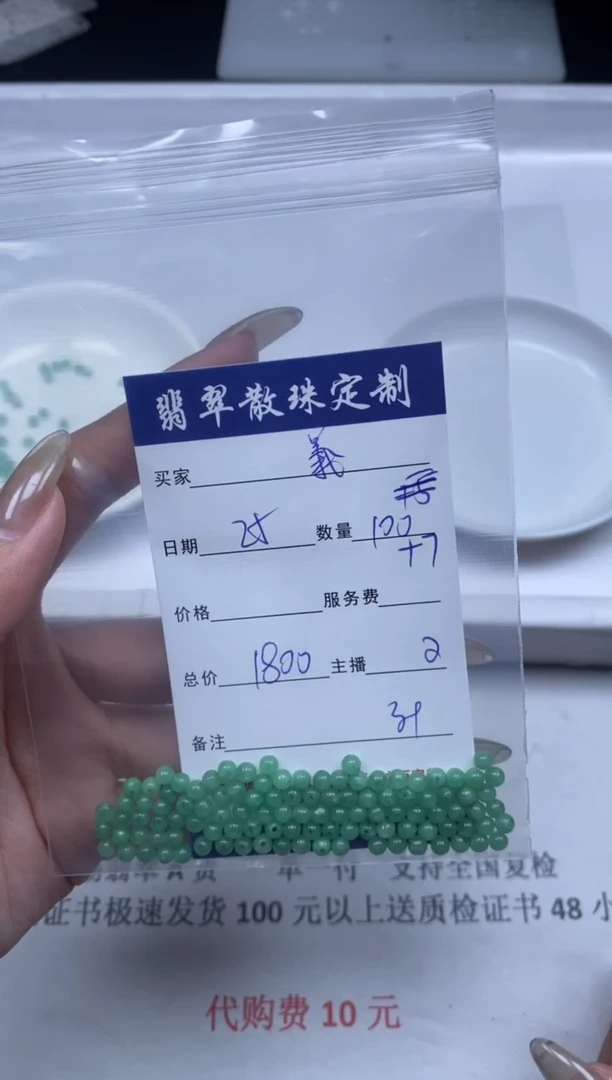 翡翠散珠定制
买家 義
日期 25 数量 100
+7
价格 服务费
总价 1800 主播 2
备注
支持全国复检
证书极速发货 100 元以上送质检证书 48 小
代购费 10 元